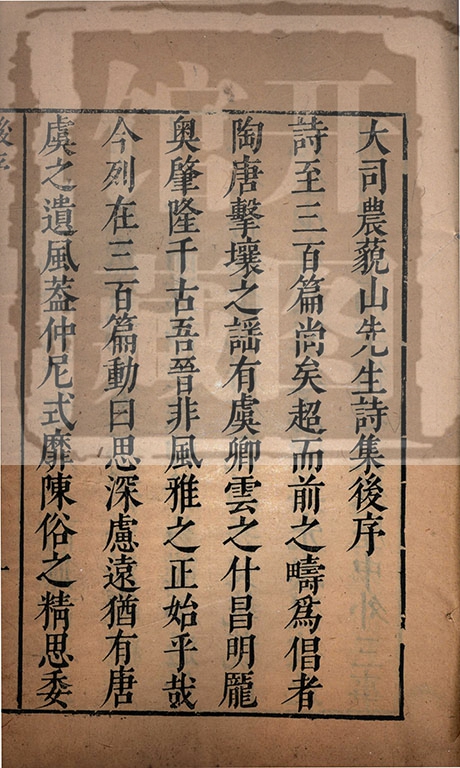 大司農藐山先生詩集後序
詩至三百篇尚矣超而前之疇爲倡者
陶唐擊壤之謡有虞卿雲之什昌明龎
奥肇隆千古吾晉非風雅之正始乎哉
今列在三百篇動曰思深慮遠猶有唐
虞之遺風葢仲尼式靡陳俗之精思委
後序